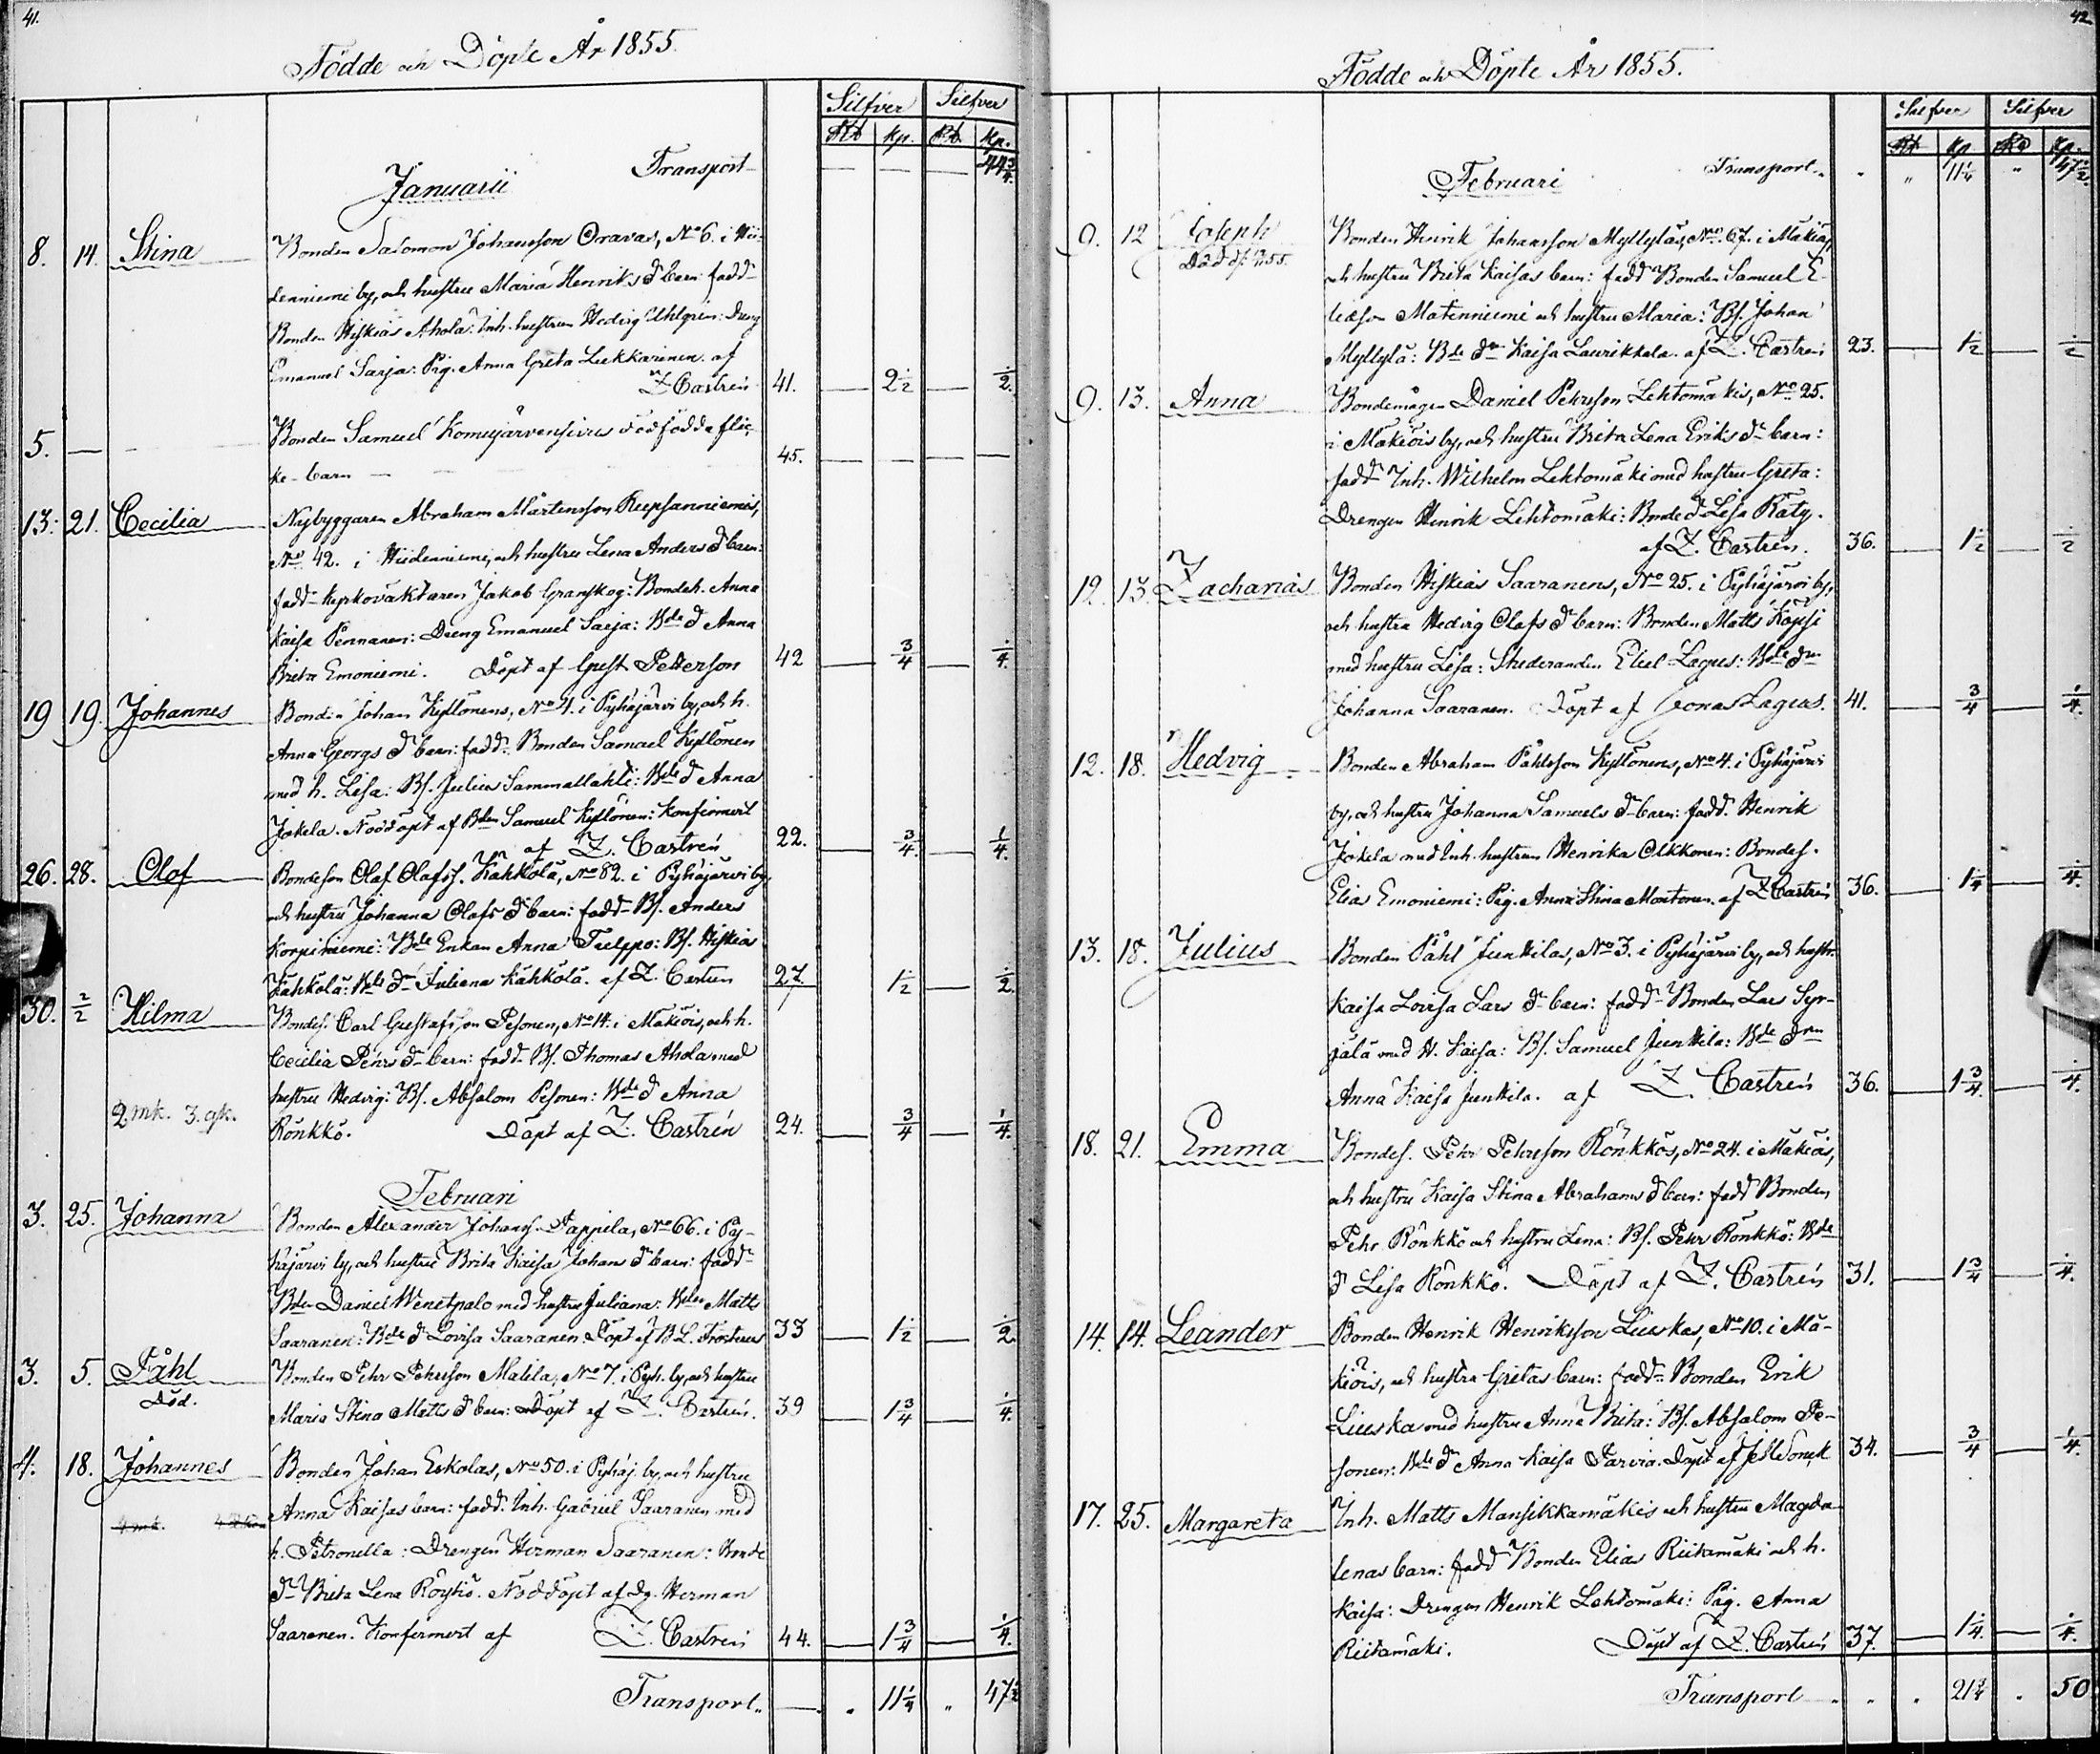 41.
Födde och Döpte År 1855.
Silfver Silfver
Rb kp. Rb kp.
Januarii Transport — — — 44 3/4.
8. 14. Stina Bonden Salomon Johansson Oravas, No 6. i Hii-
denniemi by, och hustru Maria Henriks dr barn: fadd
Bonden Hiskias Ahola: Inh. hustrun Hedvig Uhlgren: Dreng
Emanuel Sarja: Pig. Anna Greta Leskkarinen. af
Z Castrén 41. — 2 1/2 — 1/2.
5. — Bonden Samuel Komujärvensivus dödfödda flic-
ke-barn — 45. — — — —
13. 21. Cecilia Nybyggaren Abraham Mårtensson Reepsanniemis,
No 42. i Hiidenniemi, och hustru Lena Anders dr barn:
fadd Kyrkovaktaren Jakob Granskog: Bondeh. Anna
Kaisa Pennanen: Dreng Emanuel Sarja: Bde d Anna
Brita Emoniemi. Döpt af Gust. Petterson 42 — 3/4 — 1/4.
19 19. Johannes Bonden Johan Kyllönens, No 4. i Pyhäjärvi by, och h.
Anna Georgs dr barn: fadd. Bonden Samuel Kyllönen
med h. Lisa: Bs. Julius Sammallahti: Bde d Anna
Jokela. Nöddöpt af Bden Samuel Kyllönen: Konfirmert
af Z. Castrén 22. — 3/4. — 1/4.
26. 28. Olof Bondeson Olof Olofss. Kähkölä, No 82. i Pyhäjärvi by,
och hustru Johanna Olofs dr barn: fadd Bs. Anders
Korpiniemi: Bde Enkan Anna Tulppo: Bs. Hiskias
Kähkölä: Bde dr Juliana Kähkölä. af Z. Castrén 27. 1 1/2 — 1/2.
30. 2/2 Hilma Bondes. Carl Gustafsson Pesonen, No 14. i Mäkiöis, och h.
Cecilia Pehrs dr barn: fadd. Bs. Thomas Ahola med
hustru Hedvig: Bs. Absalom Pesonen: Bde d Anna
2 mk. 3. gk. Rönkkö. Döpt af Z. Castrén 24. — 3/4 — 1/4.
Februari
3. 25. Johanna Bonden Alexander Johanss. Pappila, No 66. i Py-
häjärvi by, och hustru Brita Kaisa Johans dr barn: fadd
Bden Daniel Wenetpalo med hustru Juliana: Bden Matts
Saaranen: Bde d Lovisa Saaranen Döpt af B L. Frosterus 33 — 1 1/2 — 1/2
3. 5. Påhl Bonden Pehr Pehrsson Malila, No 7. i Pyh. by, och hustru
Död. Maria Stina Matts dr barn: Döpt af Z. Castrén. 39 — 1 3/4 — 1/4.
4. 18. Johannes Bonden Johan Eskolas, No 50. i Pyhäj. by, och hustru
Anna Kaisas barn: fadd. Inh. Gabriel Saaranen med
h. Petronella: Drengen Herman Saaranen: Bonde
dr Brita Lena Röytiö. Nöddöpt af Dg. Herman
Saaranen. Konfirmert af Z. Castrén 44. — 1 3/4 — 1/4.
Transport. — . 11 1/4 " 47 1/2
42
Födde och Döpte År 1855.
Silfver Silfver
Rb kp Rb kp.
Februari Transport. " 11 1/4 " 47 1/2.
9. 12 Joseph Bonden Henrik Johansson Myllyläs, No 67. i Mäkiöis
Död 55. och hustru Brita Kaisas barn: fadd Bonden Samuel E-
liasson Matenniemi och hustru Maria: Bs. Johan
Myllylä: Bde dr Kaisa Laurikkala. af Z. Castrén 23. — 1 1/2 — 1/2
9. 13. Anna Bondemågen Daniel Pehrsson Lehtomäkis, No 25.
i Mäkiöis by, och hustru Brita Lena Eriks dr barn:
fadd Inh. Wilhelm Lehtomäki med hustru Greta:
Drengen Henrik Lehtomäki: Bonde d Lisa Räty.
af Z. Castrén. 36. — 1 1/2 — 1/2
12. 13. Zacharias Bonden Hiskias Saaranens, No 25. i Pyhäjärvi by,
och hustru Hedvig Olofs dr barn: Bonden Matts Köpsi
med hustru Lisa: Studeranden Eliel Lagus: Bde dr
Johanna Saaranen. Döpt af Jonas Lagus. 41. — 3/4 — 1/4.
12. 18. Hedvig Bonden Abraham Påhlsson Kyllönens, No 4. i Pyhäjärvi
by, och hustru Johanna Samuels dr barn: fadd. Henrik
Jokela med Inh. hustrun Henrika Olkkonen: Bondes.
Elias Emoniemi: Pig. Anna Stina Montonen. af Z Castrén 36. — 1 1/4 — 1/4.
13. 18. Julius Bonden Påhl Junttilas, No 3. i Pyhäjärvi by, och hustr.
Kaisa Lovisa Lars dr barn: fadd Bonden Lars Syr-
jälä med H. Kaisa: Bs. Samuel Junttila: Bde drn
Anna Kaisa Junttila. af Z Castrén 36. — 1 3/4. — 1/4.
18. 21. Emma Bondes. Pehr Pehrsson Rönkkös, No 24. i Mäkiöis,
och hustru Kaisa Stina Abrahams dr barn: fadd Bonden
Pehr Rönkkö och hustru Lena: Bs. Pehr Rönkkö: Bde
d Lisa Rönkkö. Döpt af Z. Castrén 31. — 1 3/4 — 1/4.
14. 14. Leander Bonden Henrik Henriksson Lieskas, No 10. i Mä-
kiöis, och hustru Gretas barn: fadd Bonden Erik
Lieska med hustru Anna Brita: Bs. Absalom Pe-
sonen: Bde d Anna Kaisa Parvia. Döpt af 34. — 3/4 — 1/4.
17. 25. Margareta Inh. Matts Mansikkamäkis och hustru Magda-
lenas barn: fadd Bonden Elias Riitamäki och h.
Kaisa: Drengen Henrik Lehtomäki: Pig. Anna
Riitamäki. Döpt af Z. Castrén 37. — 1 1/4. — 1/4.
Transport . . . 21 3/4 . 50